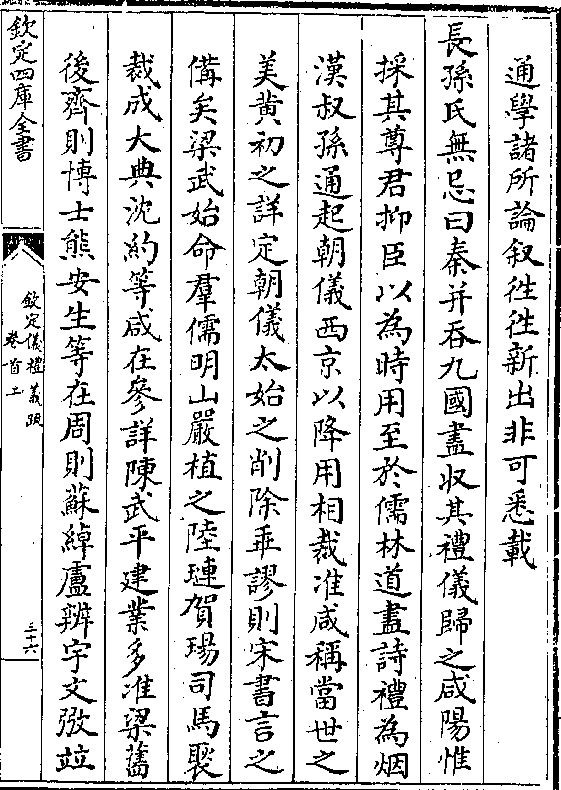 通學諸所論叙徃徃新出非可悉載
長孫氏無忌曰秦并吞九國盡収其禮儀歸之咸陽惟
採其尊君抑臣以為時用至於儒林道盡詩禮為烟
漢叔孫通起朝儀西京以降用相裁准咸稱當世之
美黄初之詳定朝儀太始之削除乖謬則宋書言之
備矣梁武始命羣儒明山嚴植之陸璉賀瑒司馬褧
裁成大典沈約等咸在參詳陳武平建業多准梁舊
後齊則博士熊安生等在周則蘇綽盧辨宇文弢竝
欽定四庫全書
欽定儀禮義疏
卷首上
三十六